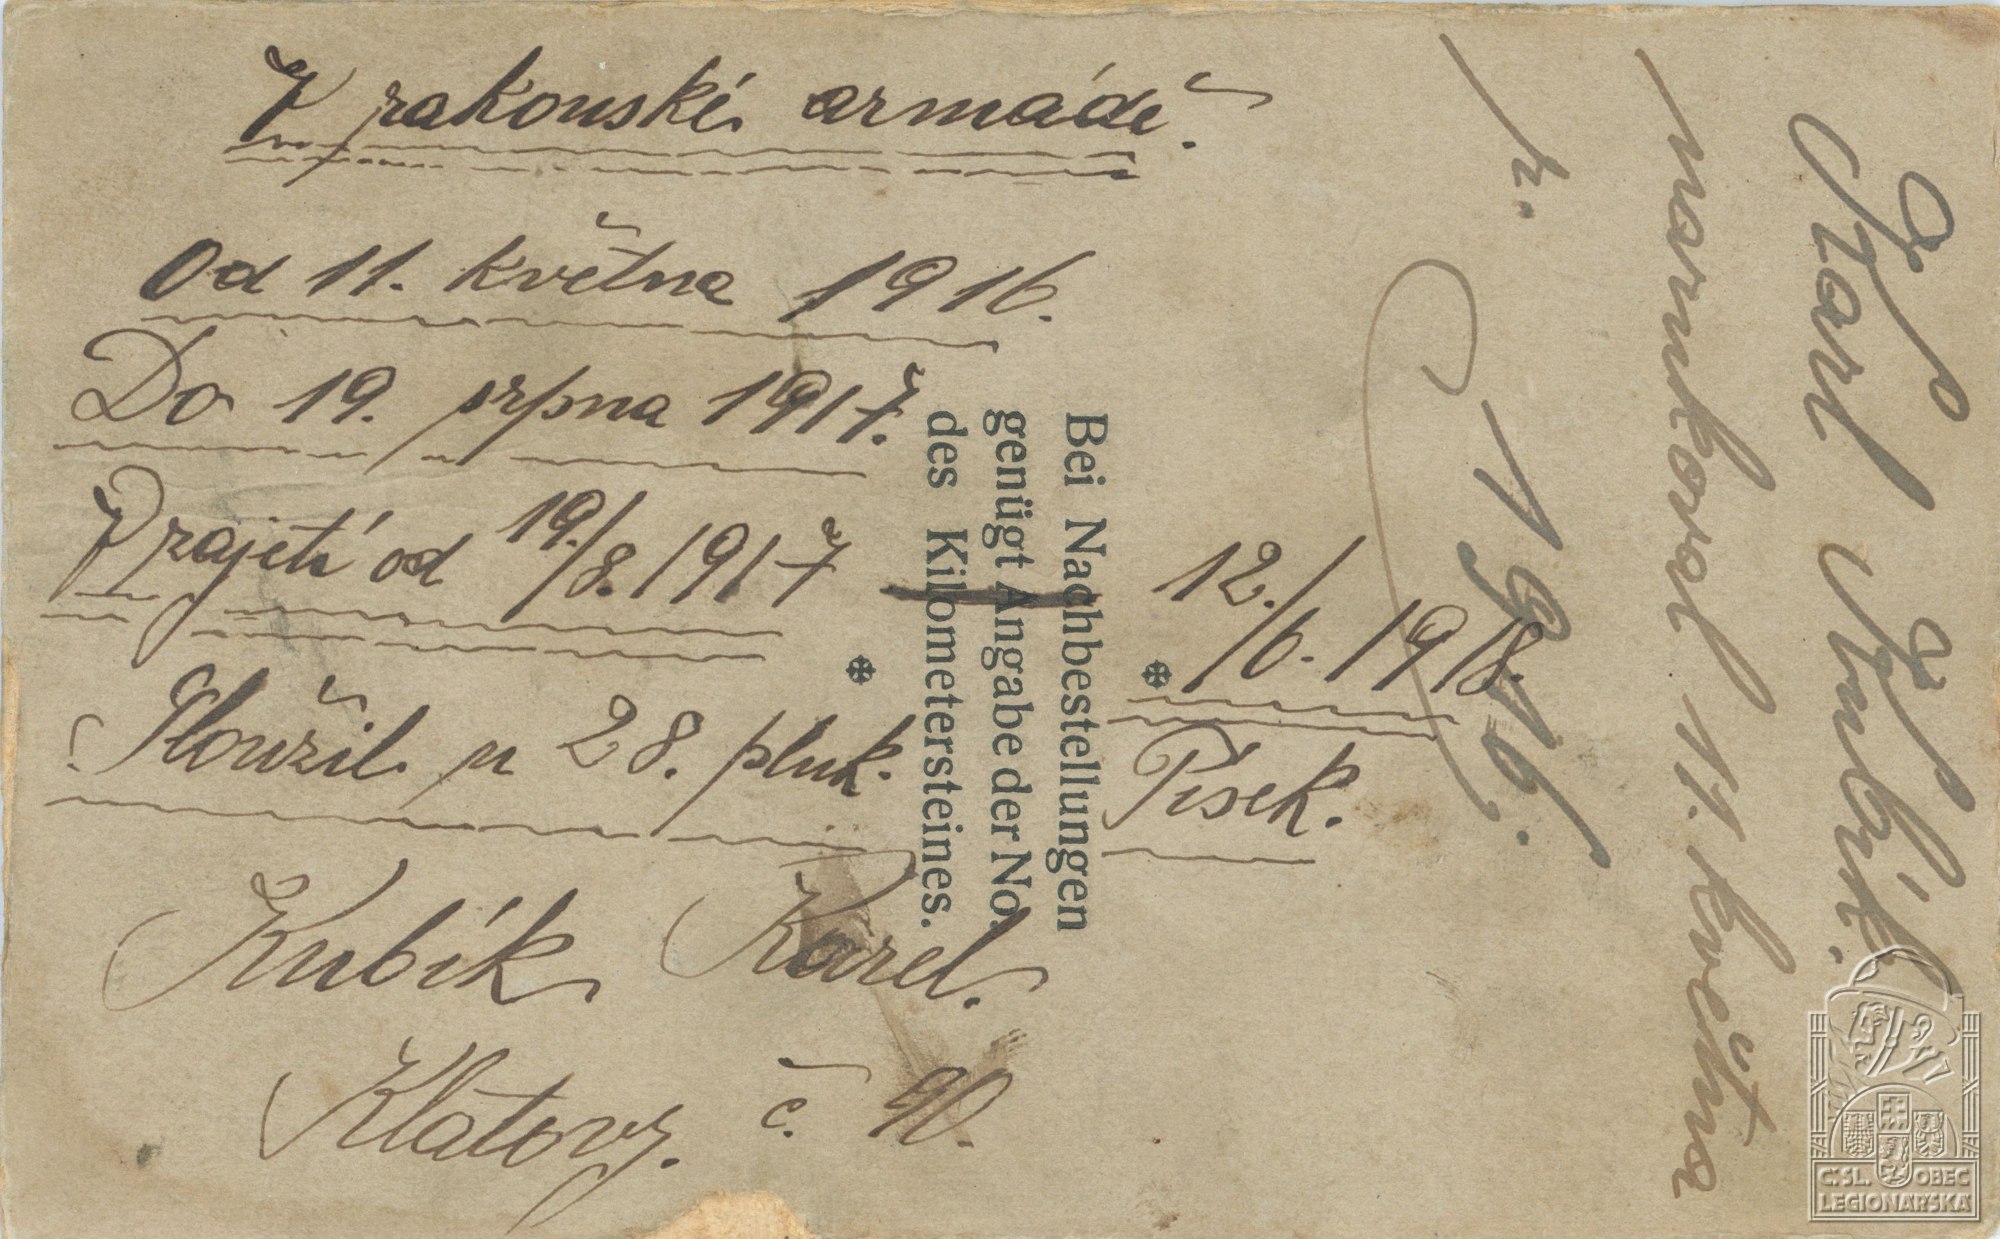 V rakouské armádě.
Od 11. května 1916.
Do 19. srpna 1917.
V zajetí od 19./8. 1917 — 12./6. 1918.
Sloužil u 28. pluk. Písek.
Kubík Karel.
Klatovy. č. 90.
Bei Nachbestellungen
genügt Angabe der No.
des Kilometersteines.
Karl Kubík.
narukoval 11. května
r. 1916.
Č.SL. OBEC
LEGIONÁŘSKÁ